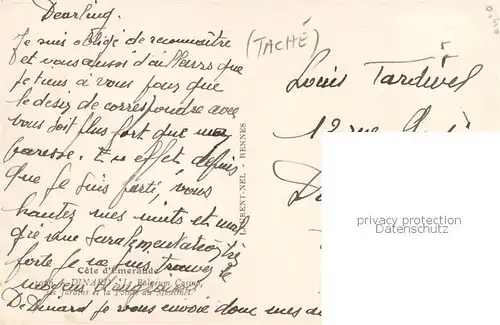 Dearling.
Je suis obligé de reconnaître
et vous aussi d'ailleurs que
je tiens à vous pour que
le désir de correspondre avec
vous soit plus fort que ma
paresse. En effet depuis
que je suis parti, vous
hantez mes nuits et mal
gré une suralimentation très
forte je
moyens
De Dinard je vous envoie donc mes
(TACHÉ)
Louis Tardivel
rue
LAURENT-NEL - RENNES
Côte d'Emeraude
DINARD - Le Balneum Casino,
les Jardins et la Pointe du Moulinet
privacy protection
www.oldthing.de